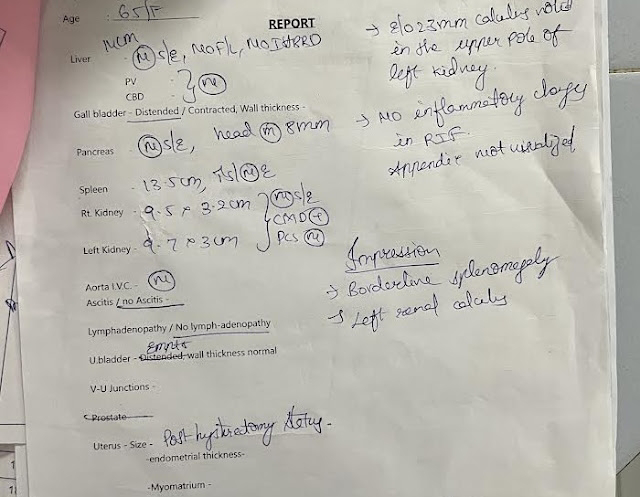 Age : 65/F
REPORT
Liver - 11cm (N) S/E, NO F/L, NO IHBRD
PV -
CBD - } (N)
Gall bladder - Distended / Contracted, Wall thickness -
Pancreas : (N) S/E, head (N) 8mm
Spleen - 13.5cm, (N) E
Rt. Kidney - 9.5 x 3.2cm } (N) S/E
CMD (+)
Left Kidney - 9.7 x 3cm PCS (N)
Aorta I.V.C. - (N)
Ascitis / no Ascitis -
Lymphadenopathy / No lymph-adenopathy
Empty
U.bladder - Distended, wall thickness normal
V-U Junctions -
Prostate
Uterus - Size - Post hysterectomy status -
-endometrial thickness-
-Myomatrium -
→ E/O 23mm calculus noted
in the upper pole of
left kidney.
→ NO inflammatory changes
in RIF.
Appendix not visualized
Impression
→ Borderline splenomegaly
→ Left renal calculus